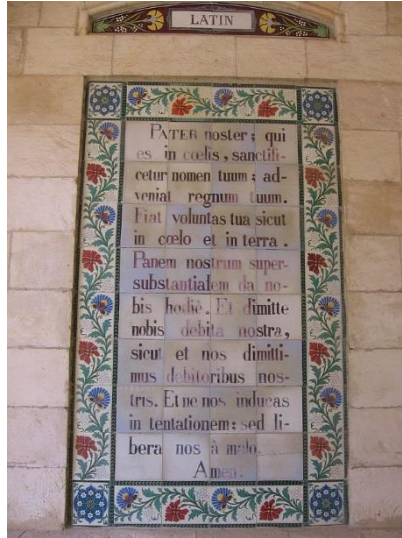 LATIN
PATER noster: qui
es in cœlis, sanctifi-
cetur nomen tuum: ad-
veniat regnum tuum.
Fiat voluntas tua sicut
in cœlo et in terra.
Panem nostrum super-
substantialem da no-
bis hodiè. Et dimitte
nobis debita nostra,
sicut et nos dimitti-
mus debitoribus nos-
tris. Et ne nos inducas
in tentationem: sed li-
bera nos à malo.
Amen.